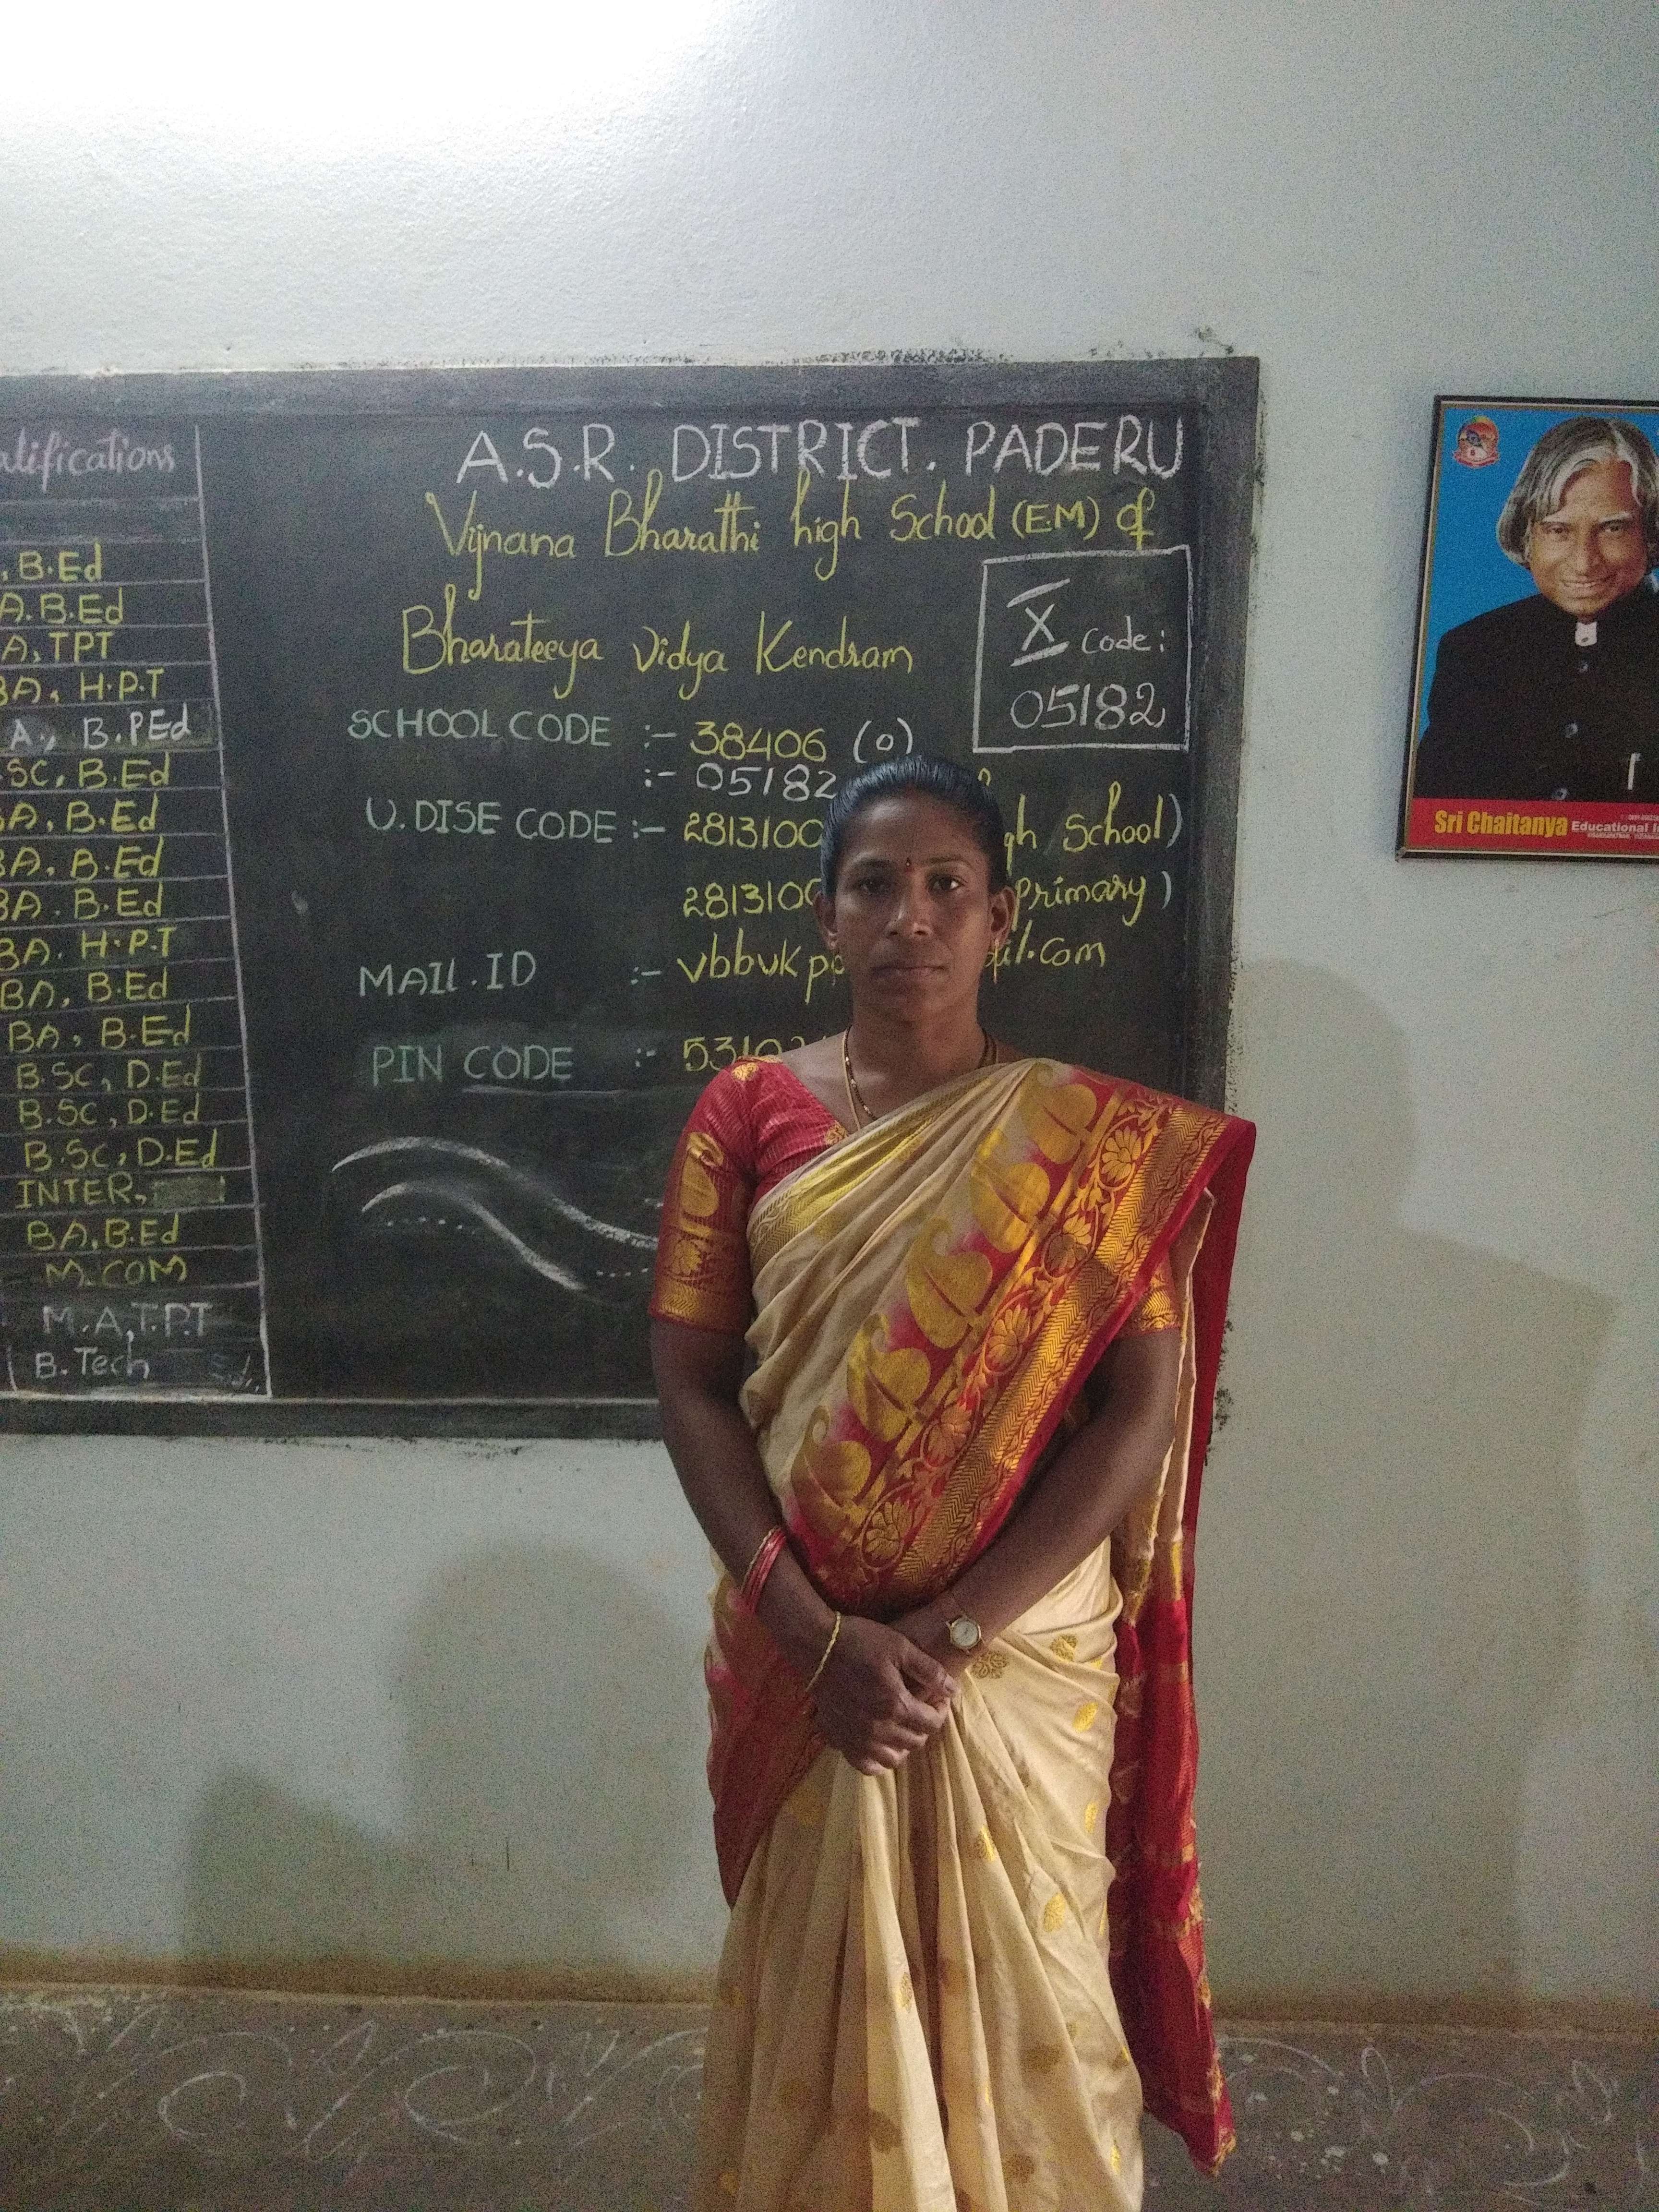 alifications
B.Ed
A.B.Ed
A, TPT
BA, H.P.T
A., B.PEd
SC, B.Ed
BA, B.Ed
BA, B.Ed
BA. B.Ed
BA. H.P.T
BA, B.Ed
BA, B.Ed
B.SC, D.Ed
B.SC, D.Ed
B.SC, D.Ed
INTER,
BA, B.Ed
M.COM
M.A, T.P.T
B.Tech
A.S.R. DISTRICT. PADERU
Vijnana Bharathi high School (E.M) of
Bharateeya Vidya Kendram
X Code:
05182
SCHOOL CODE :- 38406 (o)
:- 05182
U.DISE CODE :- 2813100 gh School)
2813100 Primary)
MAIL.ID :- vbbvkp il.com
PIN CODE :- 5310
Sri Chaitanya Educational